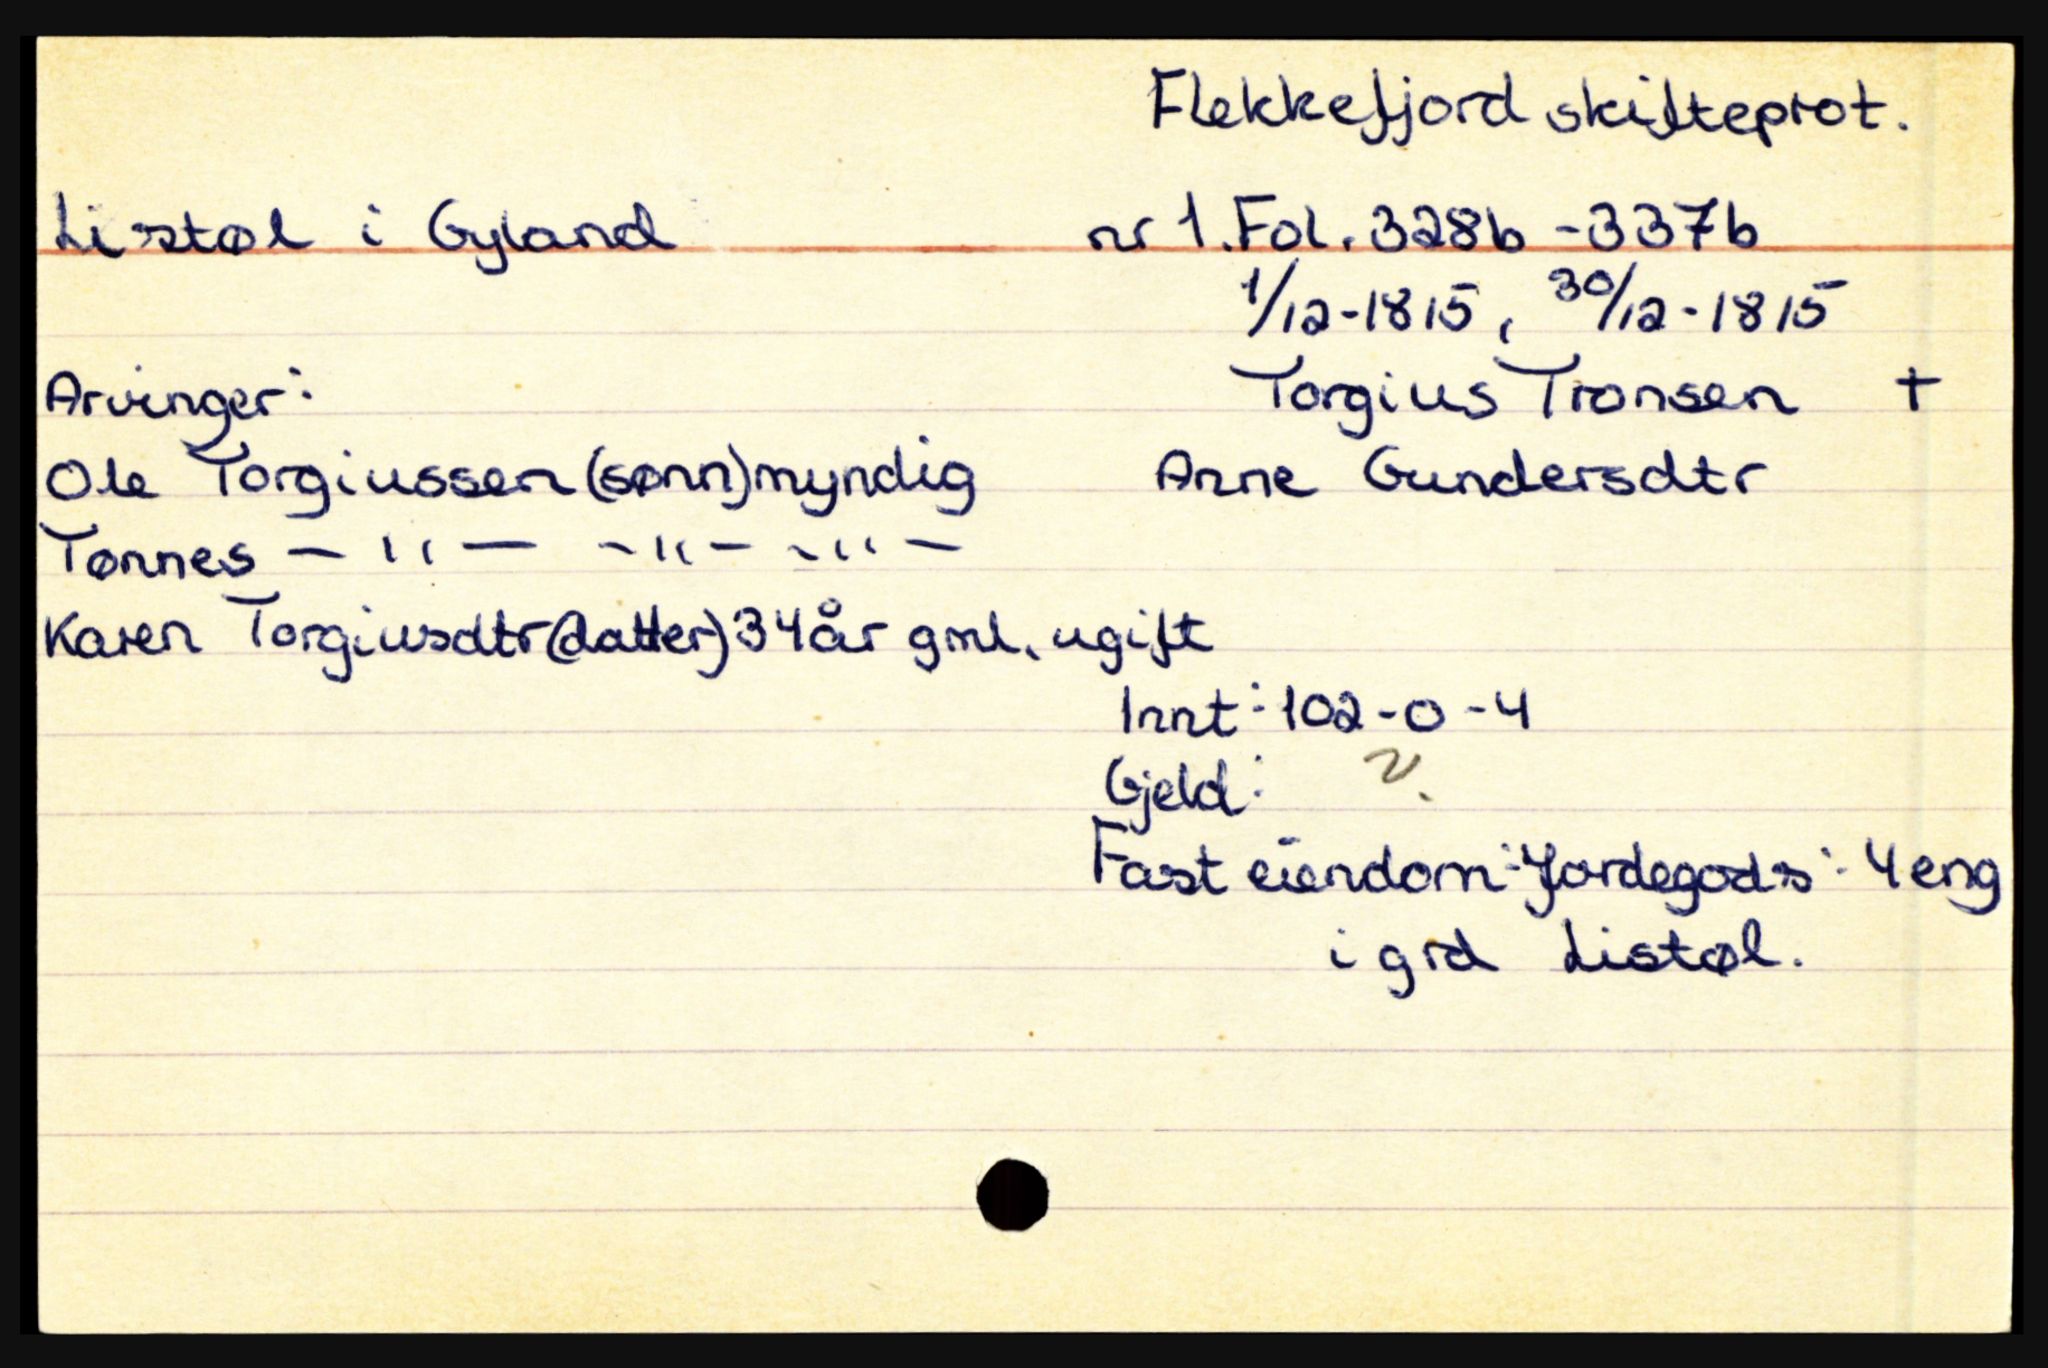 Flekkefjord skifteprot.
Listøl i Gyland nr 1. Fol. 328b - 337b
1/12-1815, 30/12-1815
Arvinger: Torgius Tronsen †
Ole Torgiussen (sønn) myndig Anne Gundersdtr
Tønnes - " - - " - - " -
Karen Torgiusdtr (datter) 34 år gml. ugift
Innt: 102-0-4
Gjeld: ?
Fast eiendom: Jordegods: 4 eng
i grd Listøl.